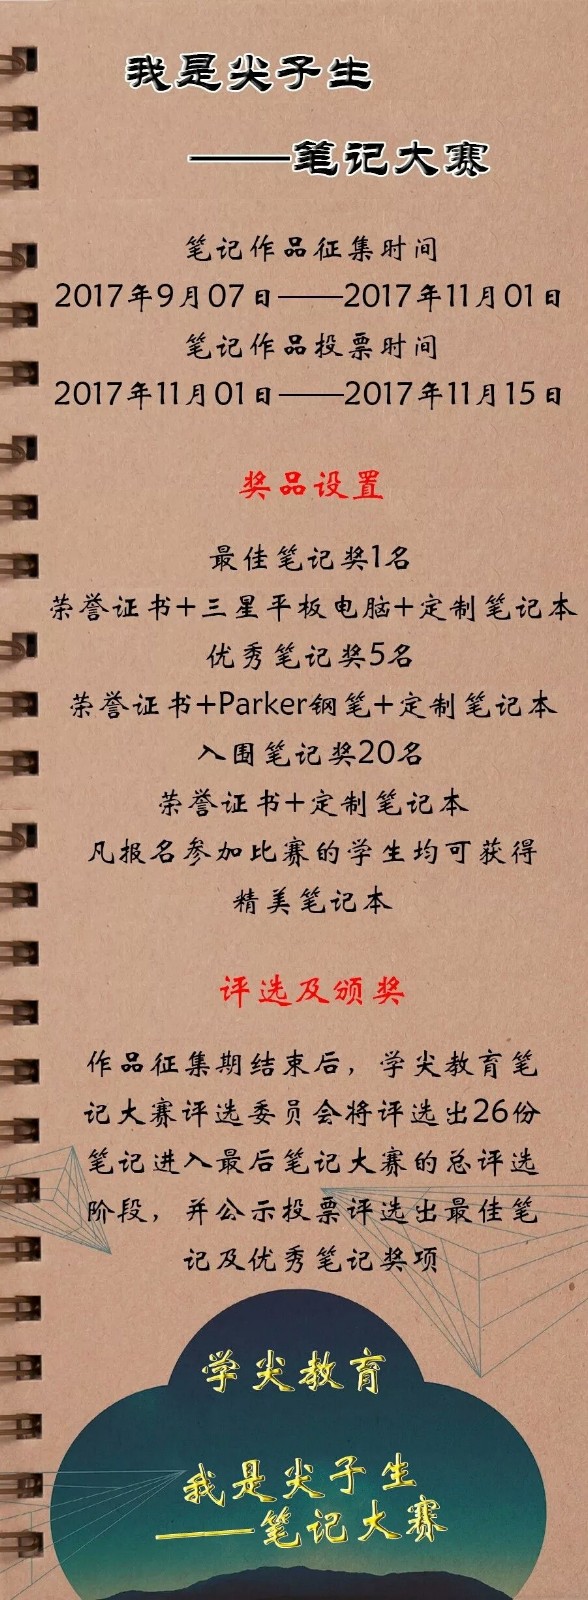 我是尖子生
——笔记大赛
笔记作品征集时间
2017年9月07日——2017年11月01日
笔记作品投票时间
2017年11月01日——2017年11月15日
奖品设置
最佳笔记奖1名
荣誉证书+三星平板电脑+定制笔记本
优秀笔记奖5名
荣誉证书+Parker钢笔+定制笔记本
入围笔记奖20名
荣誉证书+定制笔记本
凡报名参加比赛的学生均可获得
精美笔记本
评选及颁奖
作品征集期结束后，学尖教育笔
记大赛评选委员会将评选出26份
笔记进入最后笔记大赛的总评选
阶段，并公示投票评选出最佳笔
记及优秀笔记奖项
学尖教育
我是尖子生
——笔记大赛